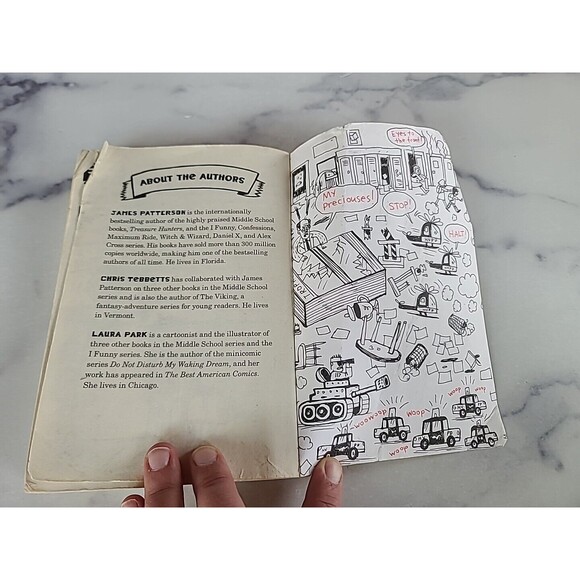 ABOUT THE AUTHORS
JAMES PATTERSON is the internationally
bestselling author of the highly praised Middle School
books, Treasure Hunters, and the I Funny, Confessions,
Maximum Ride, Witch & Wizard, Daniel X, and Alex
Cross series. His books have sold more than 300 million
copies worldwide, making him one of the bestselling
authors of all time. He lives in Florida.
CHRIS TEBBETTS has collaborated with James
Patterson on three other books in the Middle School
series and is also the author of The Viking, a
fantasy-adventure series for young readers. He lives
in Vermont.
LAURA PARK is a cartoonist and the illustrator of
three other books in the Middle School series and the
I Funny series. She is the author of the minicomic
series Do Not Disturb My Waking Dream, and her
work has appeared in The Best American Comics.
She lives in Chicago.
Eyes to
the front!
My
preciouses!
STOP!
HALT!
woop
woop
woowoop
woop
woop